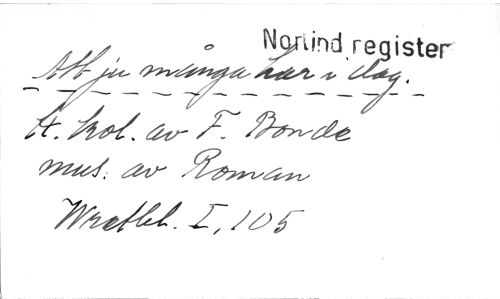 Norlind register
Att ju många har i dag.
H. kol. av F. Bonde
mus. av Roman
Wratbl. I, 105